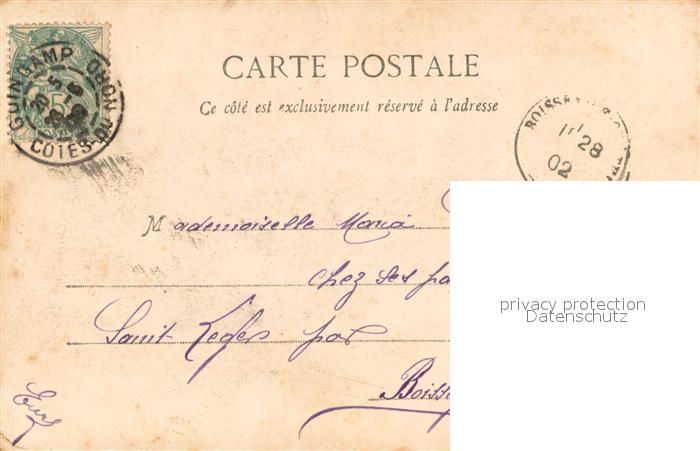 GUINGAMP
CÔTES-DU-NORD
CARTE POSTALE
Ce côté est exclusivement réservé à l'adresse
28
02
Mademoiselle Maria
chez ses pa
Saint Leger par
Boiss
Eure
privacy protection
Datenschutz